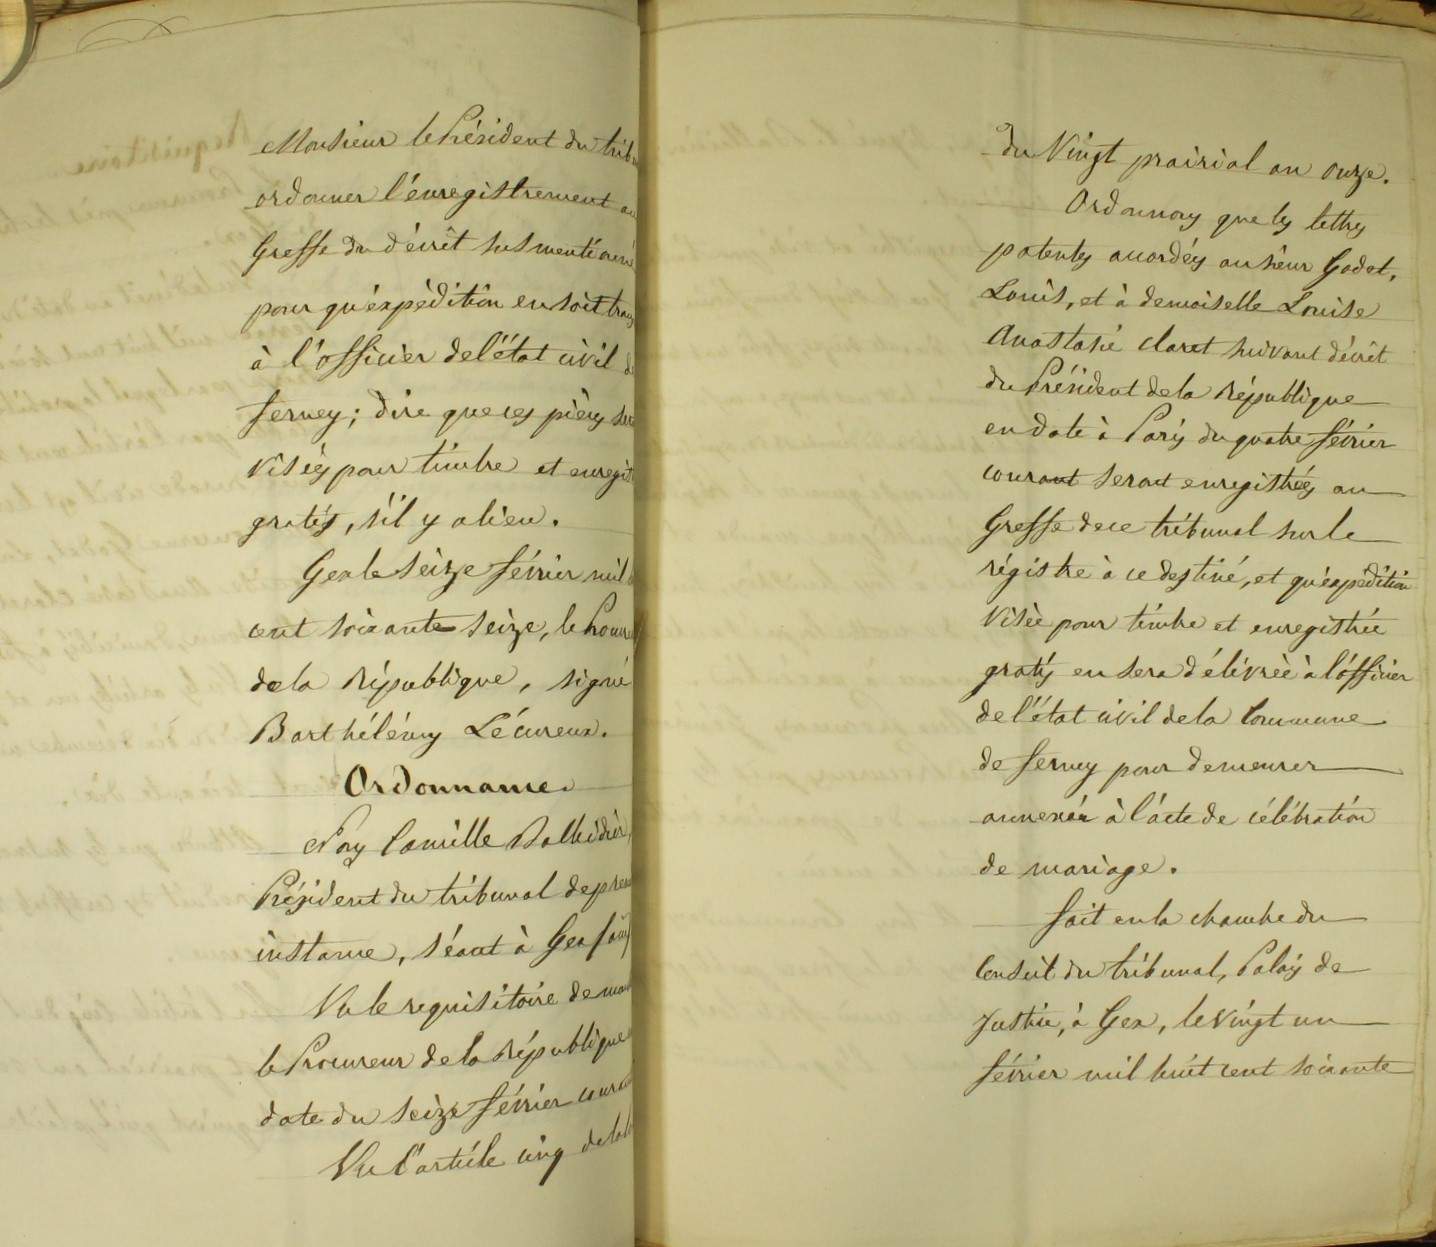 Monsieur le Président du trib
ordonner l'énregistrement au
Greffe du décrêt susmentionné
pour qu'éxpédition en soit trans
à l'officier de l'état civil de
ferney; dire que ces pièces ser
visées pour timbre et enregist
gratis, s'il y a lieu.
Gex le seize février mil
cent soixante seize, le Procureur
de la République, signé
Barthélémy Lécureux.
Ordonnance.
Nous Camille
Président du tribunal de prem
instance, séant à Gex (ain)
Vu le requisitoire de mon
le Procureur de la République
date du seize février coura
Vu l'article cinq de la loi
du Vingt prairial an onze.
Ordonnons que les lettres
patentes accordées au sieur Godet,
Louis, et à demoiselle Louise
Anastasie claret suivant décrêt
du Président de la République
en date à Paris du quatre février
courant seront enregistrées au
Greffe de ce tribunal sur le
régistre à ce destiné, et qu'éxpédition
visée pour timbre et enregistrée
gratis en sera délivrée à l'officier
de l'état civil de la Commune
de ferney pour demeurer
annexée à l'acte de célébration
de mariage.
fait en la chambre du
Conseil du tribunal, Palais de
Justice, à Gex, le vingt un
février mil huit cent soixante